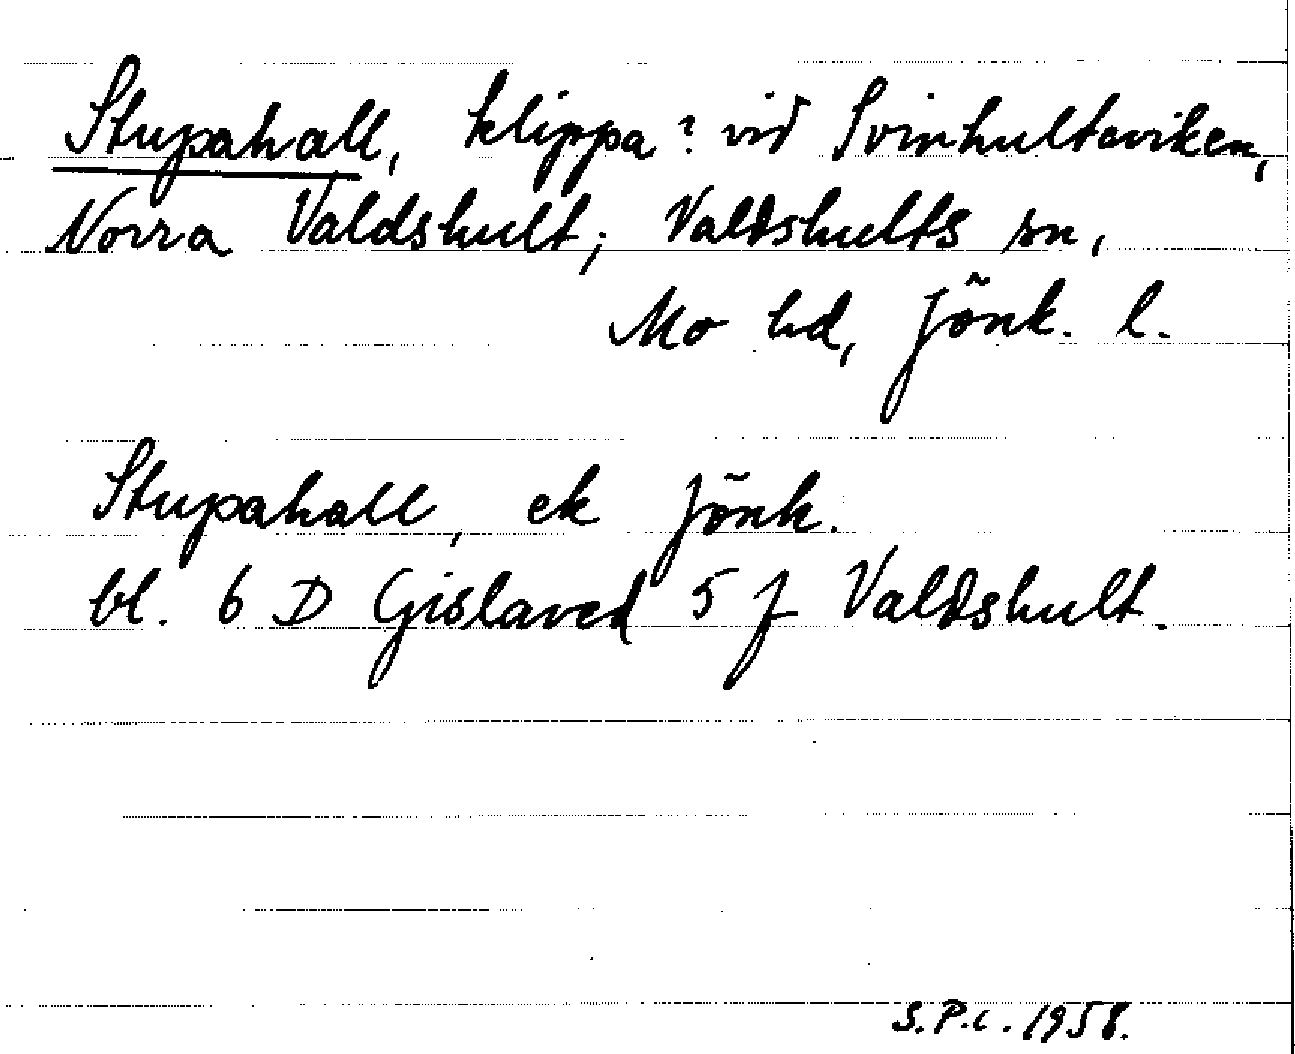 Stupahall, klippa? vid Svinhultaviken,
Norra Valdshult, Valdshults sn,
Mo hd, Jönk. l.
Stupahall, ek Jönk.
bl. 6 D Gislaved 5 f Valdshult.
S.P.C. 1958.